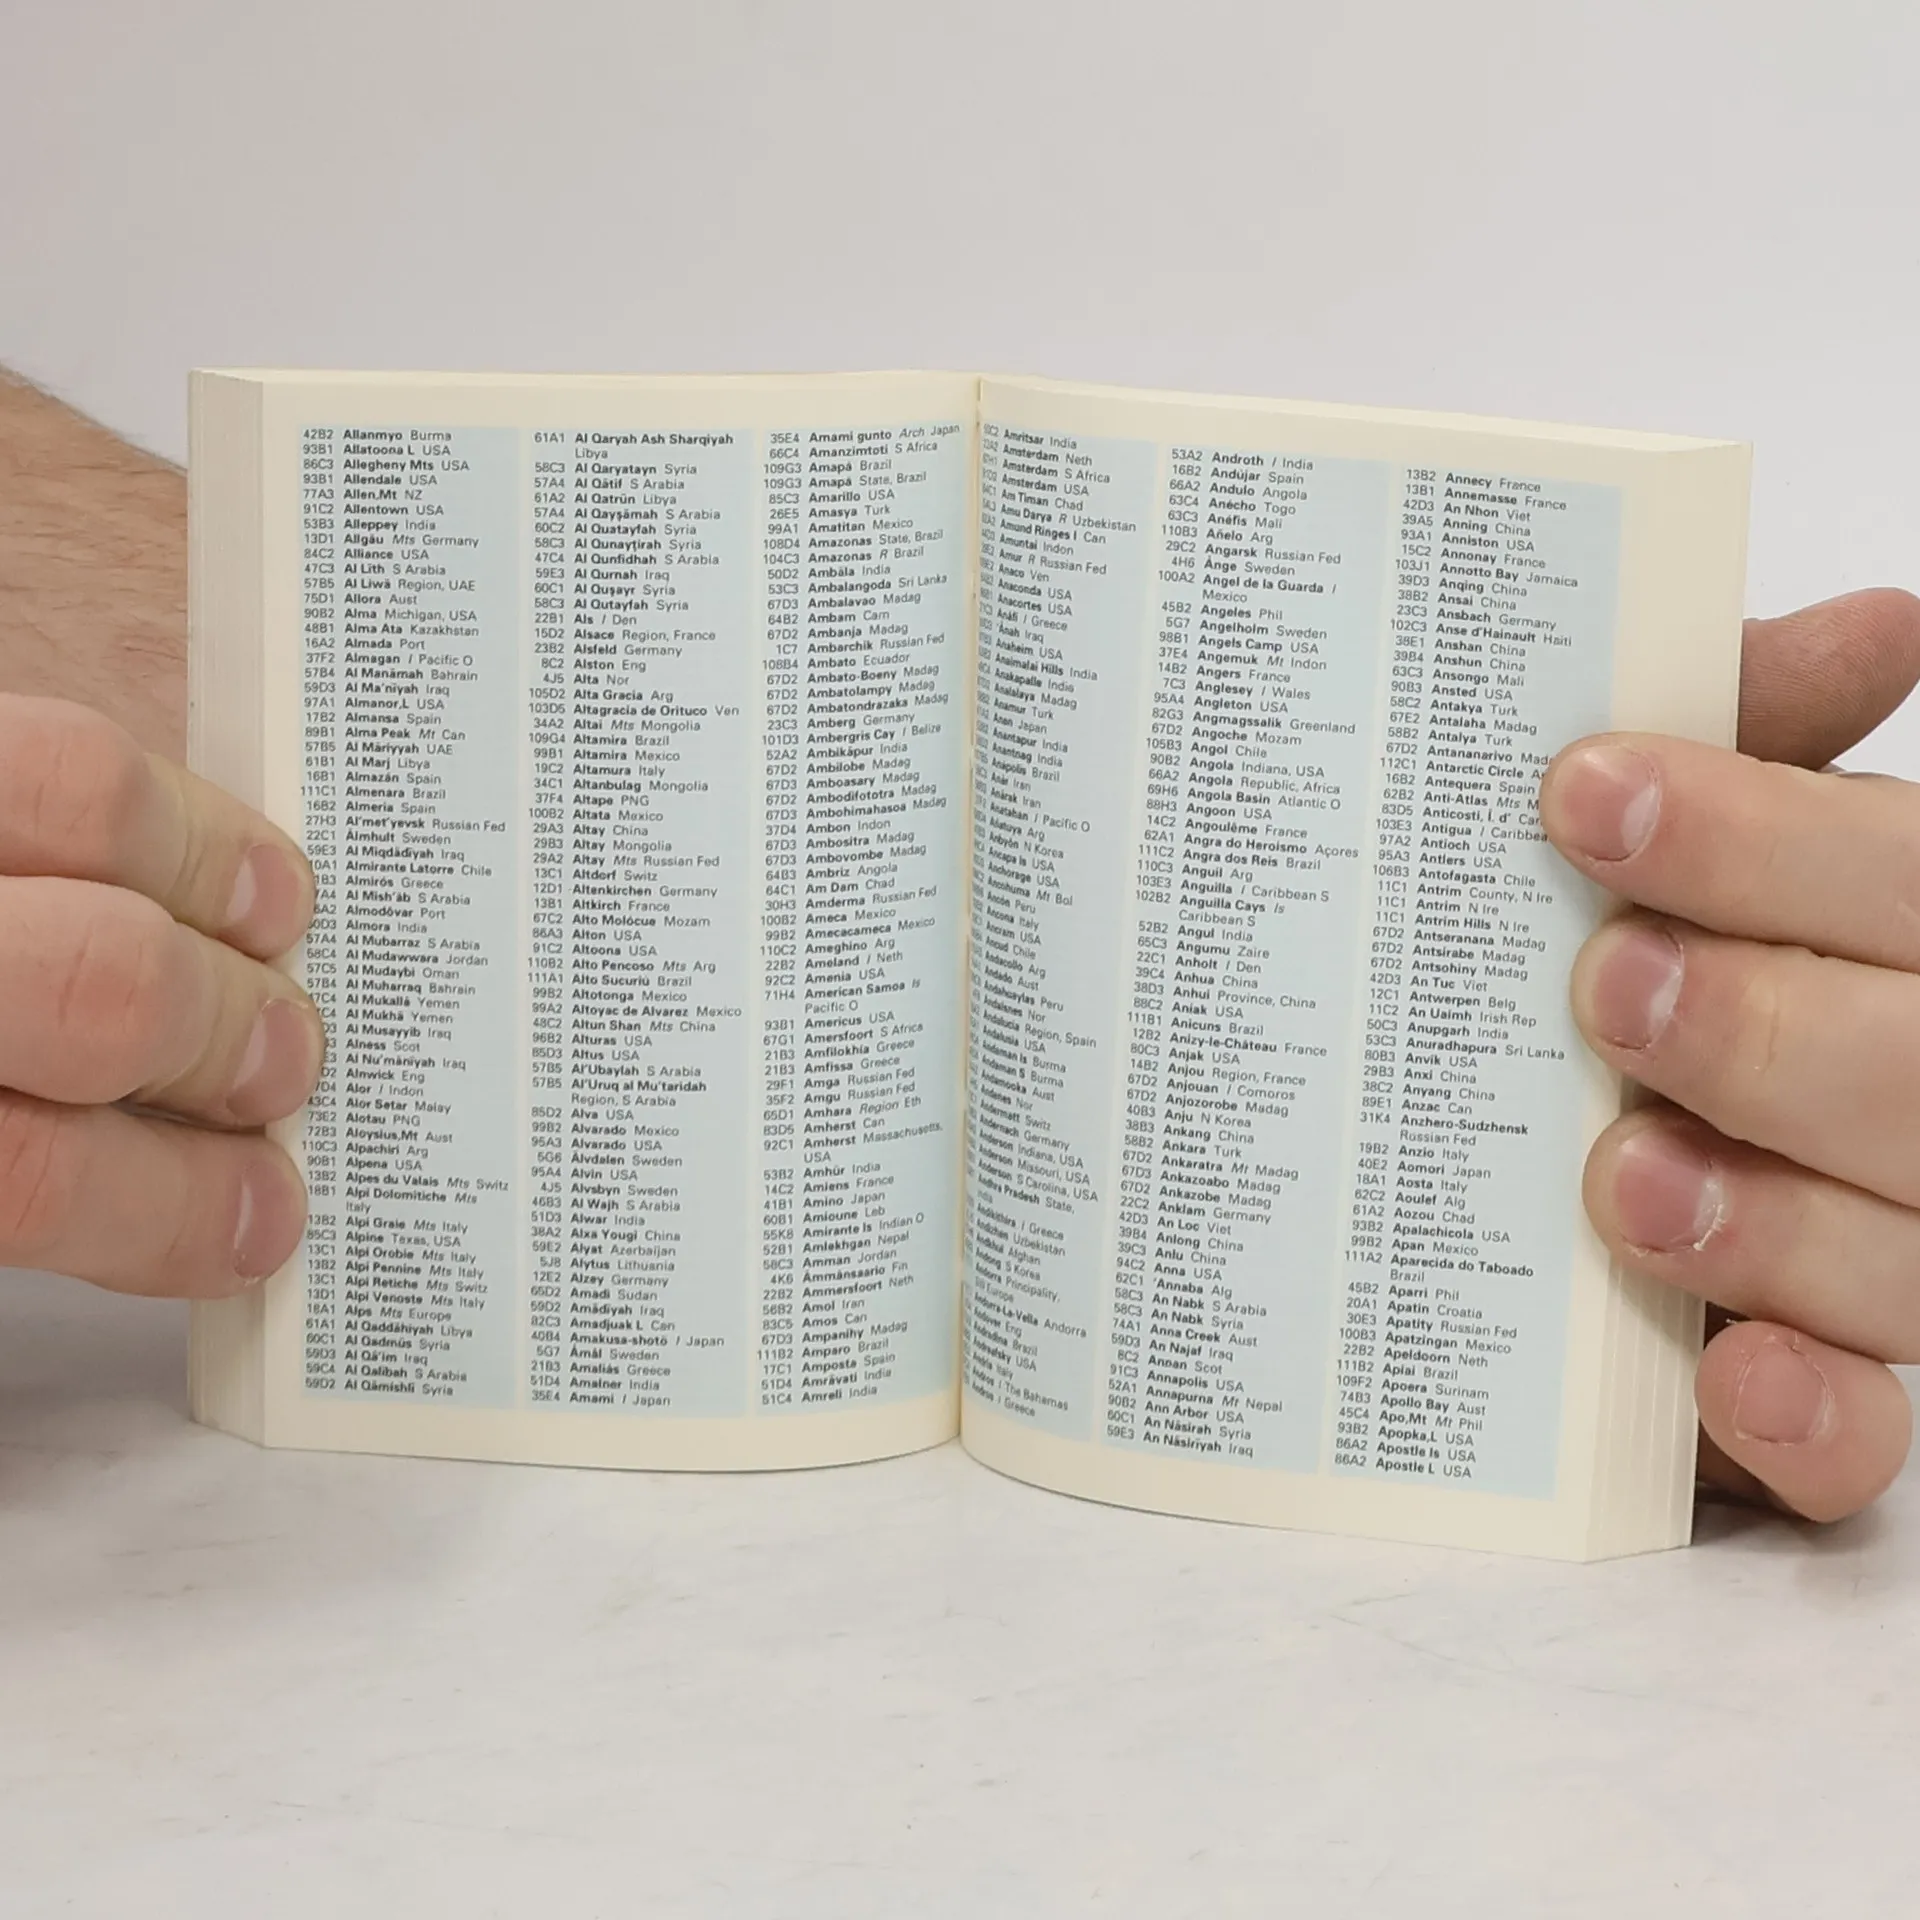 42B2 Allanmyo Burma
93B1 Allatoona L USA
86C3 Allegheny Mts USA
93B1 Allendale USA
77A3 Allen,Mt NZ
91C2 Allentown USA
53B3 Alleppey India
13D1 Allgäu Mts Germany
84C2 Alliance USA
47C3 Al Līth S Arabia
57B5 Al Liwā Region, UAE
75D1 Allora Aust
90B2 Alma Michigan, USA
48B1 Alma Ata Kazakhstan
16A2 Almada Port
37F2 Almagan I Pacific O
57B4 Al Manāmah Bahrain
59D3 Al Ma'nīyah Iraq
97A1 Almanor,L USA
17B2 Almansa Spain
89B1 Alma Peak Mt Can
57B5 Al Māriyyah UAE
61B1 Al Marj Libya
16B1 Almazán Spain
111C1 Almenara Brazil
16B2 Almeria Spain
27H3 Al'met'yevsk Russian Fed
22C1 Älmhult Sweden
59E3 Al Miqdādīyah Iraq
Almirante Latorre Chile
Almirós Greece
Al Mish'āb S Arabia
Almodôvar Port
Almora India
57A4 Al Mubarraz S Arabia
58C4 Al Mudawwara Jordan
57C5 Al Mudaybi Oman
57B4 Al Muharraq Bahrain
Al Mukallā Yemen
Al Mukhā Yemen
Al Musayyib Iraq
Alness Scot
Al Nu'mānīyah Iraq
Alnwick Eng
Alor I Indon
43C4 Alor Setar Malay
73E2 Alotau PNG
72B3 Aloysius,Mt Aust
110C3 Alpachiri Arg
90B1 Alpena USA
13B2 Alpes du Valais Mts Switz
18B1 Alpi Dolomitiche Mts
Italy
13B2 Alpi Graie Mts Italy
85C3 Alpine Texas, USA
13C1 Alpi Orobie Mts Italy
13B2 Alpi Pennine Mts Italy
13C1 Alpi Retiche Mts Switz
13D1 Alpi Venoste Mts Italy
18A1 Alps Mts Europe
61A1 Al Qaddāhiyah Libya
60C1 Al Qadmūs Syria
59D3 Al Qā'im Iraq
59C4 Al Qalibah S Arabia
59D2 Al Qāmishlī Syria
61A1 Al Qaryah Ash Sharqiyah
Libya
58C3 Al Qaryatayn Syria
57A4 Al Qātif S Arabia
61A2 Al Qatrūn Libya
57A4 Al Qayşāmah S Arabia
60C2 Al Quatayfah Syria
58C3 Al Qunayţirah Syria
47C4 Al Qunfidhah S Arabia
59E3 Al Qurnah Iraq
60C1 Al Quşayr Syria
58C3 Al Qutayfah Syria
22B1 Als I Den
15D2 Alsace Region, France
23B2 Alsfeld Germany
8C2 Alston Eng
4J5 Alta Nor
105D2 Alta Gracia Arg
103D5 Altagracia de Orituco Ven
34A2 Altai Mts Mongolia
109G4 Altamira Brazil
99B1 Altamira Mexico
19C2 Altamura Italy
34C1 Altanbulag Mongolia
37F4 Altape PNG
100B2 Altata Mexico
29A3 Altay China
29B3 Altay Mongolia
29A2 Altay Mts Russian Fed
13C1 Altdorf Switz
12D1 Altenkirchen Germany
13B1 Altkirch France
67C2 Alto Molócue Mozam
86A3 Alton USA
91C2 Altoona USA
110B2 Alto Pencoso Mts Arg
111A1 Alto Sucuriú Brazil
99B2 Altotonga Mexico
99A2 Altoyac de Alvarez Mexico
48C2 Altun Shan Mts China
96B2 Alturas USA
85D3 Altus USA
57B5 Al'Ubaylah S Arabia
57B5 Al'Uruq al Mu'taridah
Region, S Arabia
85D2 Alva USA
99B2 Alvarado Mexico
95A3 Alvarado USA
5G6 Älvdalen Sweden
95A4 Alvin USA
4J5 Älvsbyn Sweden
46B3 Al Wajh S Arabia
51D3 Alwar India
38A2 Alxa Yougi China
59E2 Alyat Azerbaijan
5J8 Alytus Lithuania
12E2 Alzey Germany
65D2 Amadi Sudan
59D2 Amādīyah Iraq
82C3 Amadjuak L Can
40B4 Amakusa-shotō I Japan
5G7 Åmål Sweden
21B3 Amaliás Greece
51D4 Amalner India
35E4 Amami I Japan
35E4 Amami gunto Arch Japan
66C4 Amanzimtoti S Africa
109G3 Amapá Brazil
109G3 Amapá State, Brazil
85C3 Amarillo USA
26E5 Amasya Turk
99A1 Amatitan Mexico
108D4 Amazonas State, Brazil
104C3 Amazonas R Brazil
50D2 Ambāla India
53C3 Ambalangoda Sri Lanka
67D3 Ambalavao Madag
64B2 Ambam Cam
67D2 Ambanja Madag
1C7 Ambarchik Russian Fed
108B4 Ambato Ecuador
67D2 Ambato-Boeny Madag
67D2 Ambatolampy Madag
67D2 Ambatondrazaka Madag
23C3 Amberg Germany
101D3 Ambergris Cay I Belize
52A2 Ambikāpur India
67D2 Ambilobe Madag
67D3 Amboasary Madag
67D2 Ambodifototra Madag
67D3 Ambohimahasoa Madag
37D4 Ambon Indon
67D3 Ambositra Madag
67D3 Ambovombe Madag
64B3 Ambriz Angola
64C1 Am Dam Chad
30H3 Amderma Russian Fed
100B2 Ameca Mexico
99B2 Amecacameca Mexico
110C2 Ameghino Arg
22B2 Ameland I Neth
92C2 Amenia USA
71H4 American Samoa Is
Pacific O
93B1 Americus USA
67G1 Amersfoort S Africa
21B3 Amfilokhía Greece
21B3 Amfissa Greece
29F1 Amga Russian Fed
35F2 Amgu Russian Fed
65D1 Amhara Region Eth
83D5 Amherst Can
92C1 Amherst Massachusetts,
USA
53B2 Amhūr India
14C2 Amiens France
41B1 Amino Japan
60B1 Amioune Leb
55K8 Amirante Is Indian O
52B1 Amlekhgan Nepal
58C3 Amman Jordan
4K6 Ämmänsaario Fin
22B2 Ammersfoort Neth
56B2 Amol Iran
83C5 Amos Can
67D3 Ampanihy Madag
111B2 Amparo Brazil
17C1 Amposta Spain
51D4 Amrāvati India
51C4 Amreli India
Amritsar India
Amsterdam Neth
Amsterdam S Africa
Amsterdam USA
Am Timan Chad
Amu Darya R Uzbekistan
Amund Ringes I Can
Amuntai Indon
Amur R Russian Fed
Anaco Ven
Anaconda USA
Anacortes USA
Anáfi I Greece
'Ānah Iraq
Anaheim USA
Anaimalai Hills India
Anakapalle India
Analalaya Madag
Anamur Turk
Anan Japan
Anantapur India
Anantnag India
Anápolis Brazil
Anār Iran
Anārak Iran
Anatahan I Pacific O
Añatuya Arg
Anbyŏn N Korea
Ancapa Is USA
Anchorage USA
Ancohuma Mt Bol
Ancón Peru
Ancona Italy
Ancram USA
Ancud Chile
Andacollo Arg
Andado Aust
Andahuaylas Peru
Andalsnes Nor
Andalucia Region, Spain
Andalusia USA
Andaman Is Burma
Andaman S Burma
Andamooka Aust
Andenes Nor
Andermatt Switz
Andernach Germany
Anderson Indiana, USA
Anderson Missouri, USA
Anderson S Carolina, USA
Andhra Pradesh State,
India
Andikíthira I Greece
Andizhan Uzbekistan
Andkhui Afghan
Andong S Korea
Andorra Principality,
SW Europe
Andorra-La-Vella Andorra
Andover Eng
Andradina Brazil
Andreafsky USA
Andria Italy
Andros I The Bahamas
Andros I Greece
53A2 Androth I India
16B2 Andújar Spain
66A2 Andulo Angola
63C4 Anécho Togo
63C3 Anéfis Mali
110B3 Añelo Arg
29C2 Angarsk Russian Fed
4H6 Ånge Sweden
100A2 Angel de la Guarda I
Mexico
45B2 Angeles Phil
5G7 Angelholm Sweden
98B1 Angels Camp USA
37E4 Angemuk Mt Indon
14B2 Angers France
7C3 Anglesey I Wales
95A4 Angleton USA
82G3 Angmagssalik Greenland
67D2 Angoche Mozam
105B3 Angol Chile
90B2 Angola Indiana, USA
66A2 Angola Republic, Africa
69H6 Angola Basin Atlantic O
88H3 Angoon USA
14C2 Angoulême France
62A1 Angra do Heroismo Açores
111C2 Angra dos Reis Brazil
110C3 Anguil Arg
103E3 Anguilla I Caribbean S
102B2 Anguilla Cays Is
Caribbean S
52B2 Angul India
65C3 Angumu Zaire
22C1 Anholt I Den
39C4 Anhua China
38D3 Anhui Province, China
88C2 Aniak USA
111B1 Anicuns Brazil
12B2 Anizy-le-Château France
80C3 Anjak USA
14B2 Anjou Region, France
67D2 Anjouan I Comoros
67D2 Anjozorobe Madag
40B3 Anju N Korea
38B3 Ankang China
58B2 Ankara Turk
67D2 Ankaratra Mt Madag
67D3 Ankazoabo Madag
67D2 Ankazobe Madag
22C2 Anklam Germany
42D3 An Loc Viet
39B4 Anlong China
39C3 Anlu China
94C2 Anna USA
62C1 'Annaba Alg
58C3 An Nabk S Arabia
58C3 An Nabk Syria
74A1 Anna Creek Aust
59D3 An Najaf Iraq
8C2 Annan Scot
91C3 Annapolis USA
52A1 Annapurna Mt Nepal
90B2 Ann Arbor USA
60C1 An Nāsirah Syria
59E3 An Nāsirīyah Iraq
13B2 Annecy France
13B1 Annemasse France
42D3 An Nhon Viet
39A5 Anning China
93A1 Anniston USA
15C2 Annonay France
103J1 Annotto Bay Jamaica
39D3 Anqing China
38B2 Ansai China
23C3 Ansbach Germany
102C3 Anse d'Hainault Haiti
38E1 Anshan China
39B4 Anshun China
63C3 Ansongo Mali
90B3 Ansted USA
58C2 Antakya Turk
67E2 Antalaha Madag
58B2 Antalya Turk
67D2 Antananarivo
112C1 Antarctic Circle
16B2 Antequera Spain
62B2 Anti-Atlas Mts
83D5 Anticosti, I. d'
103E3 Antigua I
97A2 Antioch USA
95A3 Antlers USA
106B3 Antofagasta Chile
11C1 Antrim County, N Ire
11C1 Antrim N Ire
11C1 Antrim Hills N Ire
67D2 Antseranana Madag
67D2 Antsirabe Madag
67D2 Antsohiny Madag
42D3 An Tuc Viet
12C1 Antwerpen Belg
11C2 An Uaimh Irish Rep
50C3 Anupgarh India
53C3 Anuradhapura Sri Lanka
80B3 Anvik USA
29B3 Anxi China
38C2 Anyang China
89E1 Anzac Can
31K4 Anzhero-Sudzhensk
Russian Fed
19B2 Anzio Italy
40E2 Aomori Japan
18A1 Aosta Italy
62C2 Aoulef Alg
61A2 Aozou Chad
93B2 Apalachicola USA
99B2 Apan Mexico
111A2 Aparecida do Taboado
Brazil
45B2 Aparri Phil
20A1 Apatin Croatia
30E3 Apatity Russian Fed
100B3 Apatzingan Mexico
22B2 Apeldoorn Neth
111B2 Apiai Brazil
109F2 Apoera Surinam
74B3 Apollo Bay Aust
45C4 Apo,Mt Mt Phil
93B2 Apopka,L USA
86A2 Apostle Is USA
86A2 Apostle L USA